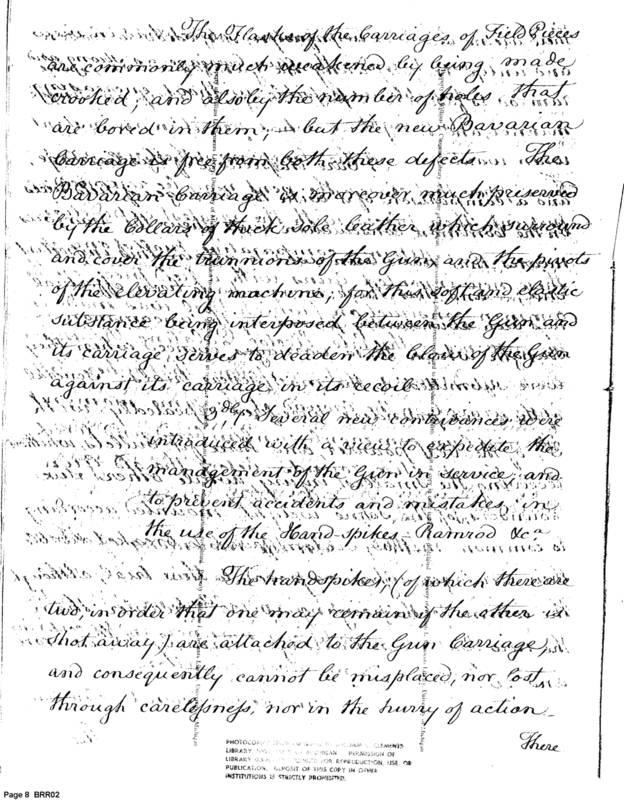 The Flasks of the Carriages of Field Pieces
are commonly much weakened by being made
crooked; and also by the number of holes that
are bored in them; but the new Bavarian
Carriage is free from both these defects. The
Bavarian Carriage is moreover much preserved
by the Collars of thick sole leather which surround
and cover the trunnions of the Gun, and the pivots
of the elevating machine; for this soft and elastic
substance being interposed between the Gun and
its carriage serves to deaden the blow of the Gun
against its carriage in its recoil
3dly Several new contrivances were
introduced with a view to expedite the
management of the Gun in service, and
to prevent accidents and mistakes, in
the use of the Hand-spikes Ramrod &ca
The handspikes, (of which there are
two, in order that one may remain if the other is
shot away) are attached to the Gun Carriage,
and consequently cannot be misplaced, nor lost
through carelessness, nor in the hurry of action_
There
CLEMENTS
LIBRARY, PERMISSION OF
LIBRARY FOR REPRODUCTION, USE, OR
PUBLICATION. DEPOSIT OF THIS COPY IN OTHER
INSTITUTIONS IS STRICTLY PROHIBITED.
Page 8 BRR02